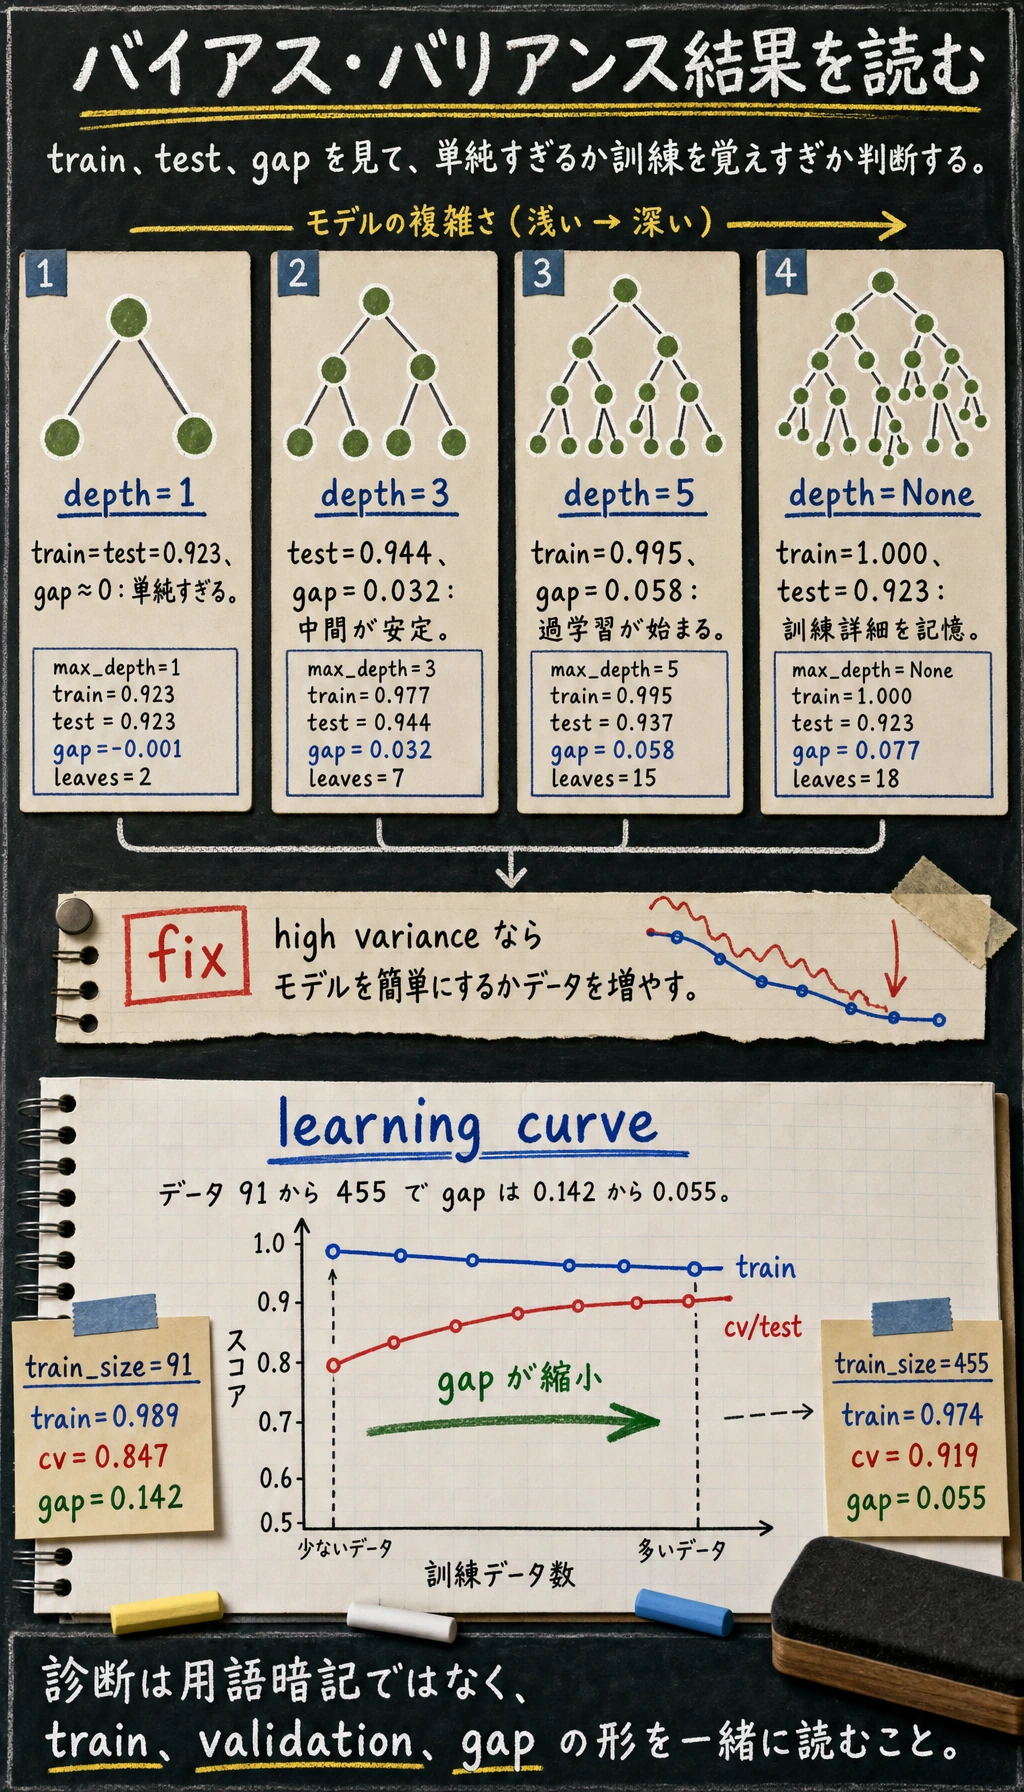 バイアス・バリアンス結果を読む
train、test、gap を見て、単純すぎるか訓練を覚えすぎか判断する。
モデルの複雑さ (浅い → 深い)
1
depth=1
train=test=0.923、
gap≈0:単純すぎる。
max_depth=1
train=0.923
test = 0.923
gap=-0.001
leaves=2
2
depth=3
test=0.944、
gap=0.032:
中間が安定。
max_depth=3
train=0.977
test = 0.944
gap= 0.032
leaves=7
3
depth=5
train=0.995、
gap=0.058:
過学習が始まる。
max_depth=5
train=0.995
test = 0.937
gap= 0.058
leaves=15
4
depth=None
train=1.000、
test=0.923:
訓練詳細を記憶。
max_depth=None
train=1.000
test = 0.923
gap= 0.077
leaves=18
fix
high variance なら
モデルを簡単にするかデータを増やす。
learning curve
データ 91 から 455 で gap は 0.142 から 0.055。
スコア
1.0
0.9
0.8
0.7
0.6
0.5
train
cv/test
gap が縮小
少ないデータ
多いデータ
訓練データ数
train_size=91
train=0.989
cv= 0.847
gap=0.142
train_size=455
train=0.974
cv= 0.919
gap=0.055
診断は用語暗記ではなく、
train、validation、gap の形を一緒に読むこと。